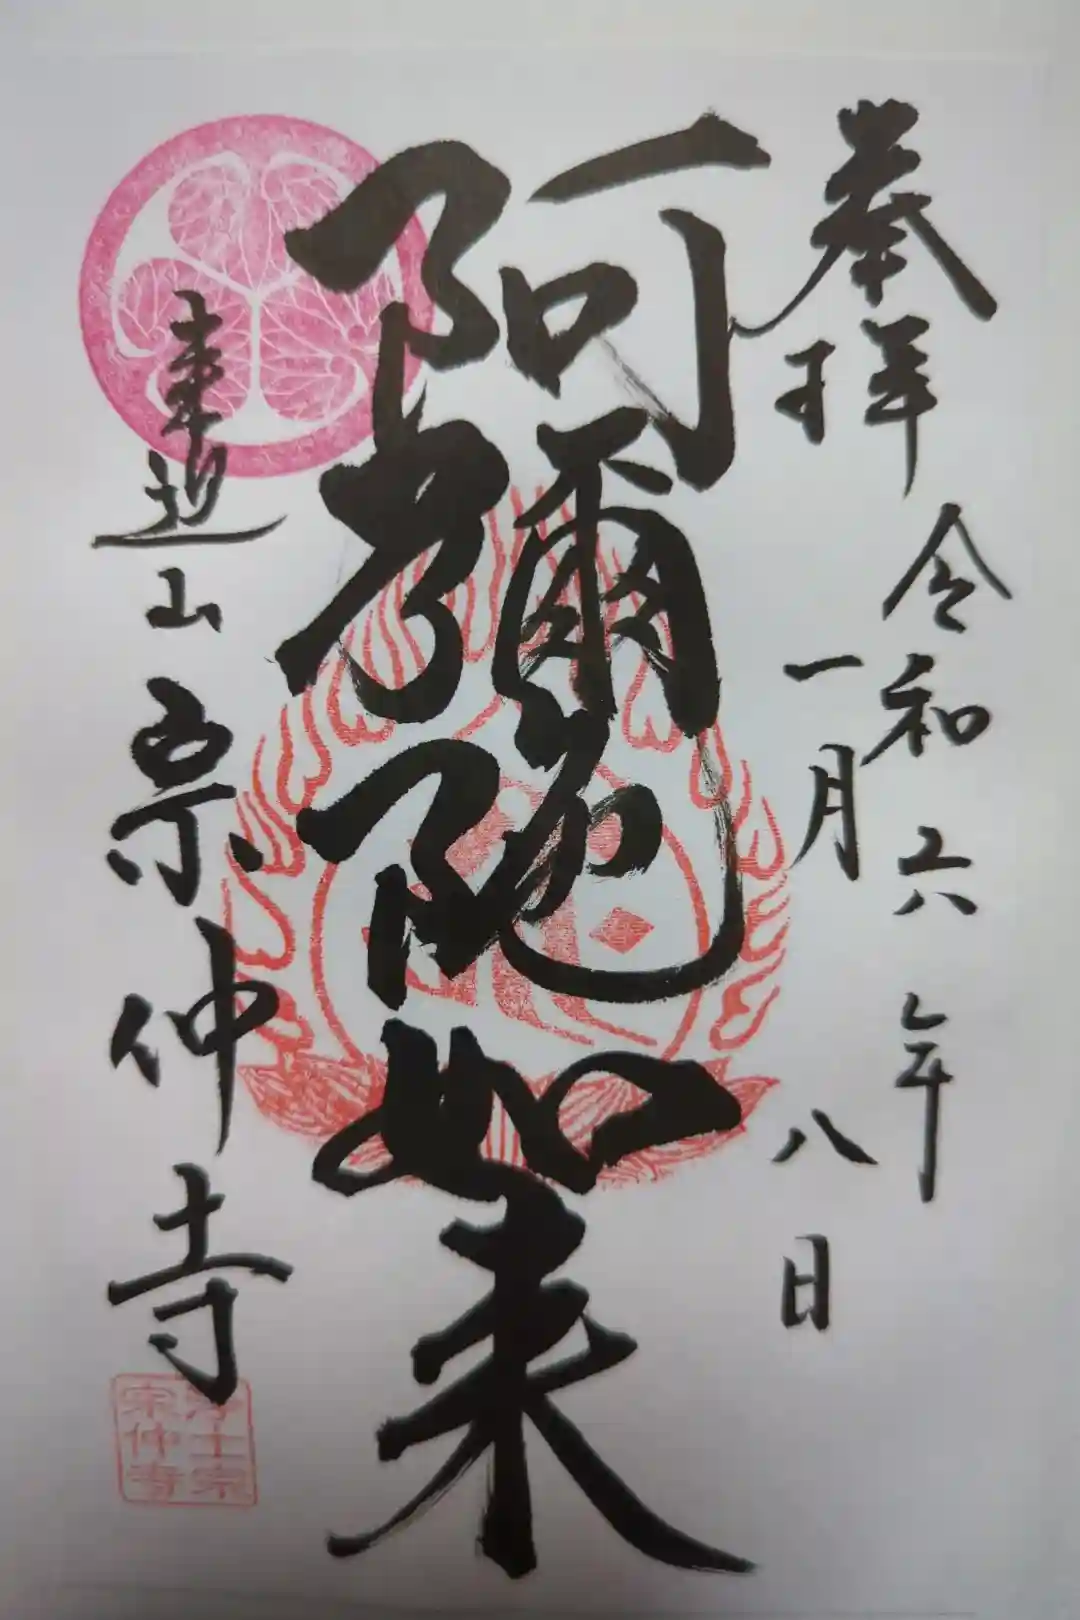 奉拝
令和六年
一月八日
阿彌陀如来
来迎山宗仲寺
浄土宗
宗仲寺